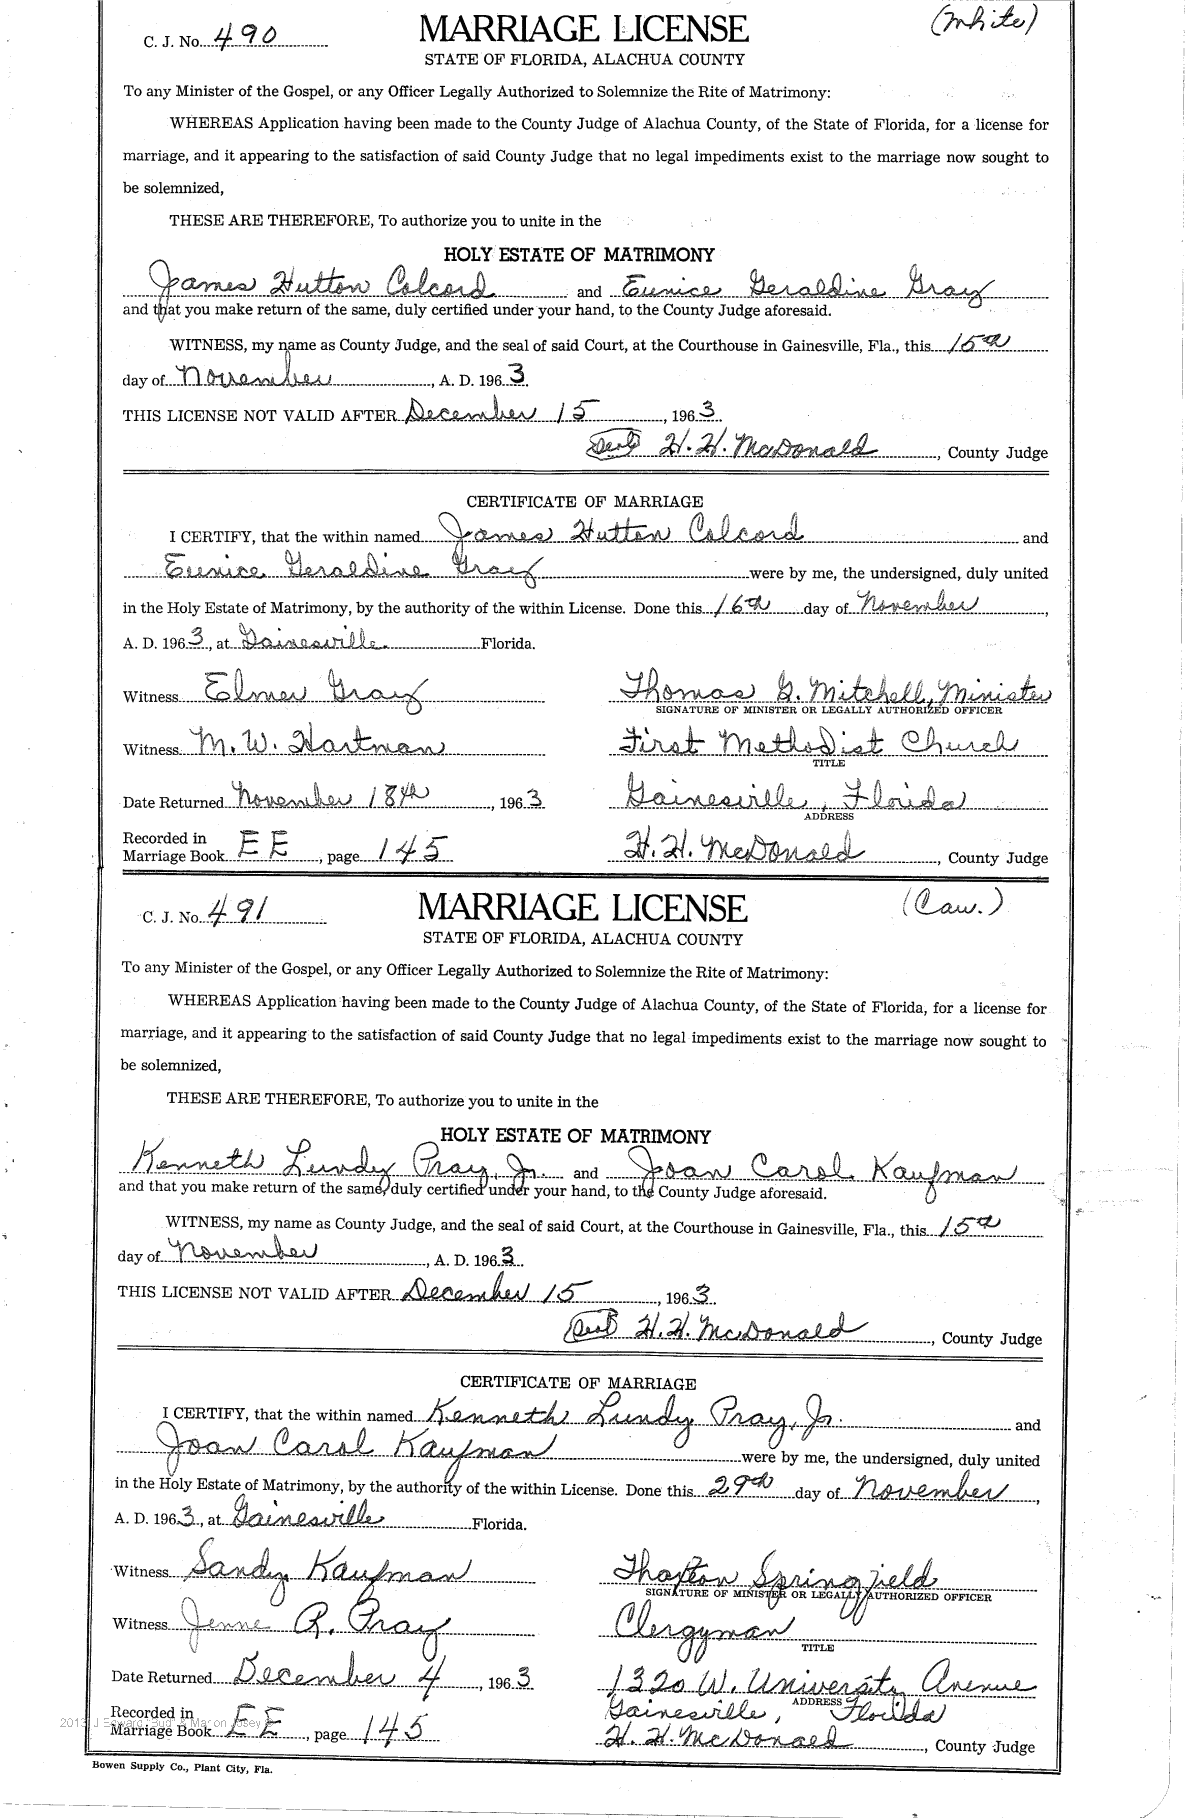 C. J. No. 490
MARRIAGE LICENSE
(White)
STATE OF FLORIDA, ALACHUA COUNTY
To any Minister of the Gospel, or any Officer Legally Authorized to Solemnize the Rite of Matrimony:
WHEREAS Application having been made to the County Judge of Alachua County, of the State of Florida, for a license for
marriage, and it appearing to the satisfaction of said County Judge that no legal impediments exist to the marriage now sought to
be solemnized,
THESE ARE THEREFORE, To authorize you to unite in the
HOLY ESTATE OF MATRIMONY
James Hutton Colcord and Eunice Geraldine Gray
and that you make return of the same, duly certified under your hand, to the County Judge aforesaid.
WITNESS, my name as County Judge, and the seal of said Court, at the Courthouse in Gainesville, Fla., this 15th
day of November, A. D. 1963.
THIS LICENSE NOT VALID AFTER December 15, 1963
Seal H. H. McDonald, County Judge
CERTIFICATE OF MARRIAGE
I CERTIFY, that the within named James Hutton Colcord and
Eunice Geraldine Gray were by me, the undersigned, duly united
in the Holy Estate of Matrimony, by the authority of the within License. Done this 16th day of November,
A. D. 1963, at Gainesville Florida.
Witness Elmer Gray Thomas G. Mitchell, Minister
SIGNATURE OF MINISTER OR LEGALLY AUTHORIZED OFFICER
Witness M. W. Hartman First Methodist Church
TITLE
Date Returned November 18th, 1963 Gainesville, Florida
ADDRESS
Recorded in
Marriage Book EE, page 145 H. H. McDonald, County Judge
C. J. No. 491
MARRIAGE LICENSE
(Cau.)
STATE OF FLORIDA, ALACHUA COUNTY
To any Minister of the Gospel, or any Officer Legally Authorized to Solemnize the Rite of Matrimony:
WHEREAS Application having been made to the County Judge of Alachua County, of the State of Florida, for a license for
marriage, and it appearing to the satisfaction of said County Judge that no legal impediments exist to the marriage now sought to
be solemnized,
THESE ARE THEREFORE, To authorize you to unite in the
HOLY ESTATE OF MATRIMONY
Kenneth Lundy Pray, Jr. and Joan Carol Kaufman
and that you make return of the same, duly certified under your hand, to the County Judge aforesaid.
WITNESS, my name as County Judge, and the seal of said Court, at the Courthouse in Gainesville, Fla., this 15th
day of November, A. D. 1963.
THIS LICENSE NOT VALID AFTER December 15, 1963.
Seal H. H. McDonald, County Judge
CERTIFICATE OF MARRIAGE
I CERTIFY, that the within named Kenneth Lundy Pray, Jr. and
Joan Carol Kaufman were by me, the undersigned, duly united
in the Holy Estate of Matrimony, by the authority of the within License. Done this 29th day of November,
A. D. 1963, at Gainesville Florida.
Witness Sandy Kaufman Thaxton Springfield
SIGNATURE OF MINISTER OR LEGALLY AUTHORIZED OFFICER
Witness Jenne R. Pray Clergyman
TITLE
Date Returned December 4, 1963 1320 W. University Avenue
ADDRESS
Gainesville, Florida
Recorded in
Marriage Book EE, page 145 H. H. McDonald, County Judge
Bowen Supply Co., Plant City, Fla.